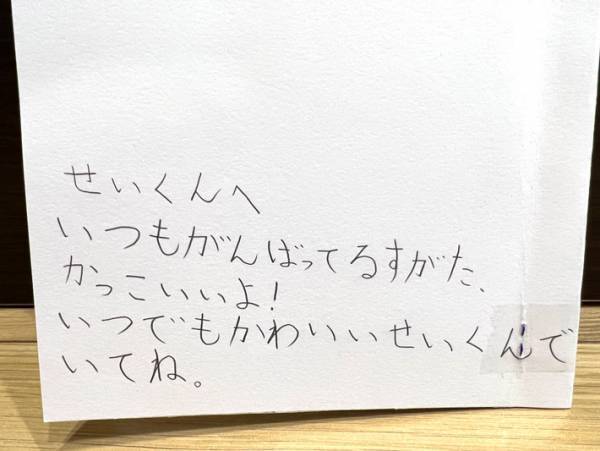 せいくんへ
いつもがんばってるすがた、
かっこいいよ!
いつでもかわいいせいくんで
いてね。